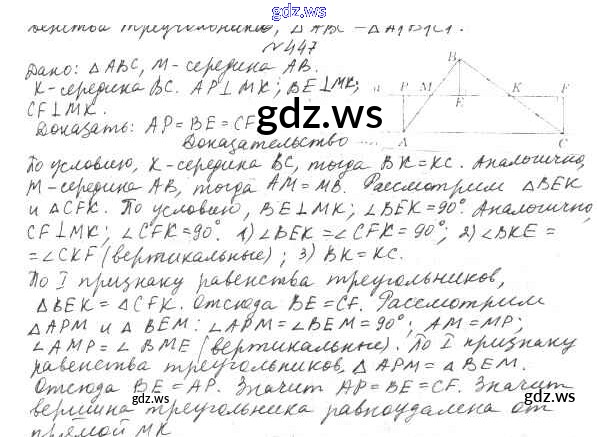 gdz.ws
венства треугольников, △ABC = △A₁B₁C₁.
№447
Дано: △ABC, M-середина AB.
K-середина BC. AP⊥MK; BE⊥MK;
CF⊥MK.
Доказать: AP=BE=CF
B
P M K F
E
A C
gdz.ws
Доказательство
По условию, K-середина BC, тогда BK=KC. Аналогично,
M-середина AB, тогда AM=MB. Рассмотрим △BEK
и △CFK. По условию, BE⊥MK; ∠BEK=90°. Аналогично,
CF⊥MK; ∠CFK=90°. 1) ∠BEK=∠CFK=90°; 2) ∠BKE=
=∠CKF (вертикальные); 3) BK=KC.
По I признаку равенства треугольников,
△BEK=△CFK. Отсюда BE=CF. Рассмотрим
△APM и △BEM: ∠APM=∠BEM=90°; AM=MP;
∠AMP=∠BME (вертикальные). По I признаку
равенства треугольников, △APM=△BEM.
Отсюда BE=AP. Значит AP=BE=CF. Значит
gdz.ws gdz.ws
вершина треугольника равноудалена от
прямой MK